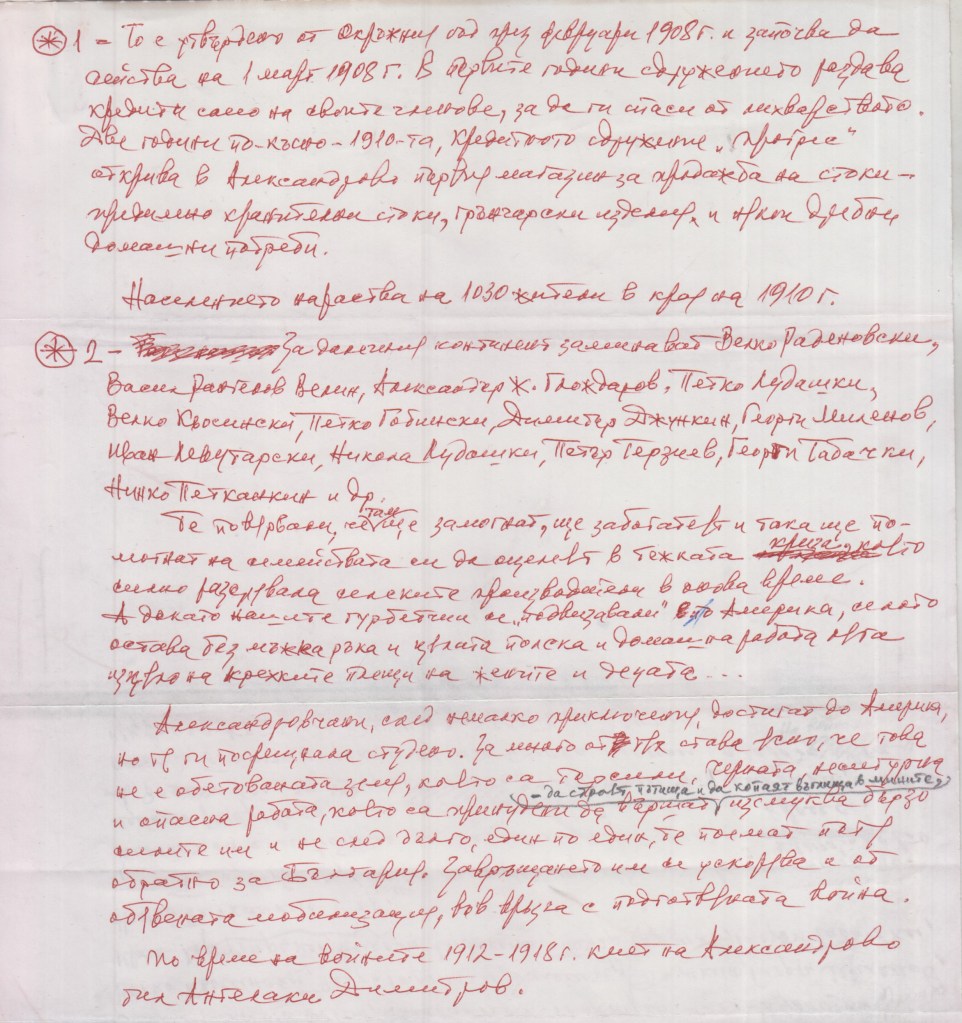 * 1 – То е утвърдено от Окръжния съд през февруари 1908 г. и започва да
действа на 1 март 1908 г. В първите години сдружението раздава
кредити само на своите членове, за да ги спаси от лихварството.
Две години по-късно – 1910-та, Кредитното сдружение „Прогрес“
открива в Александрово първия магазин за продажба на стоки –
предимно хранителни стоки, грънчарски изделия, и някои дребни
домашни потреби.
Населението нараства на 1030 жители в края на 1910 г.
* 2 – За далечния континент заминават Велко Раденовски,
Васил Рангелов Велин, Александър Ж. Глождаров, Петко Лудашки,
Велко Късински, Петко Гобински, Димитър Джункин, Георги Миленов,
Иван Лешутарски, Никола Лудашки, Петър Терзиев, Георги Табачки,
Нинко Петканкин и др.
Те повярвали, че там ще замогнат, ще забогатеят и така ще по-
могнат на семействата си да оцелеят в тежката криза, която
силно разорявала селските производители в онова време.
А докато нашите гурбетчии се „подвизавали“ из Америка, селото
остава без мъжка ръка и цялата полска и домашна работа ляга
изцяло на крехките плещи на жените и децата...
Александровчани, след немалко приключения, достигат до Америка,
но тя ги посрещнала студено. За много от тях става ясно, че това
не е обетованата земя, която са търсили. Черната, несигурна
– да строят пътища и да копаят въглища в мините,
и опасна работа, която са принудени да вършат изсмуква бързо
силите им и не след дълго, един по един, те поемат пътя
обратно за България. Завръщането им се ускорява и от
обявената мобилизация, във връзка с подготвяната война.
По време на войните 1912–1918 г. кмет на Александрово
бил Ангелаки Димитров.